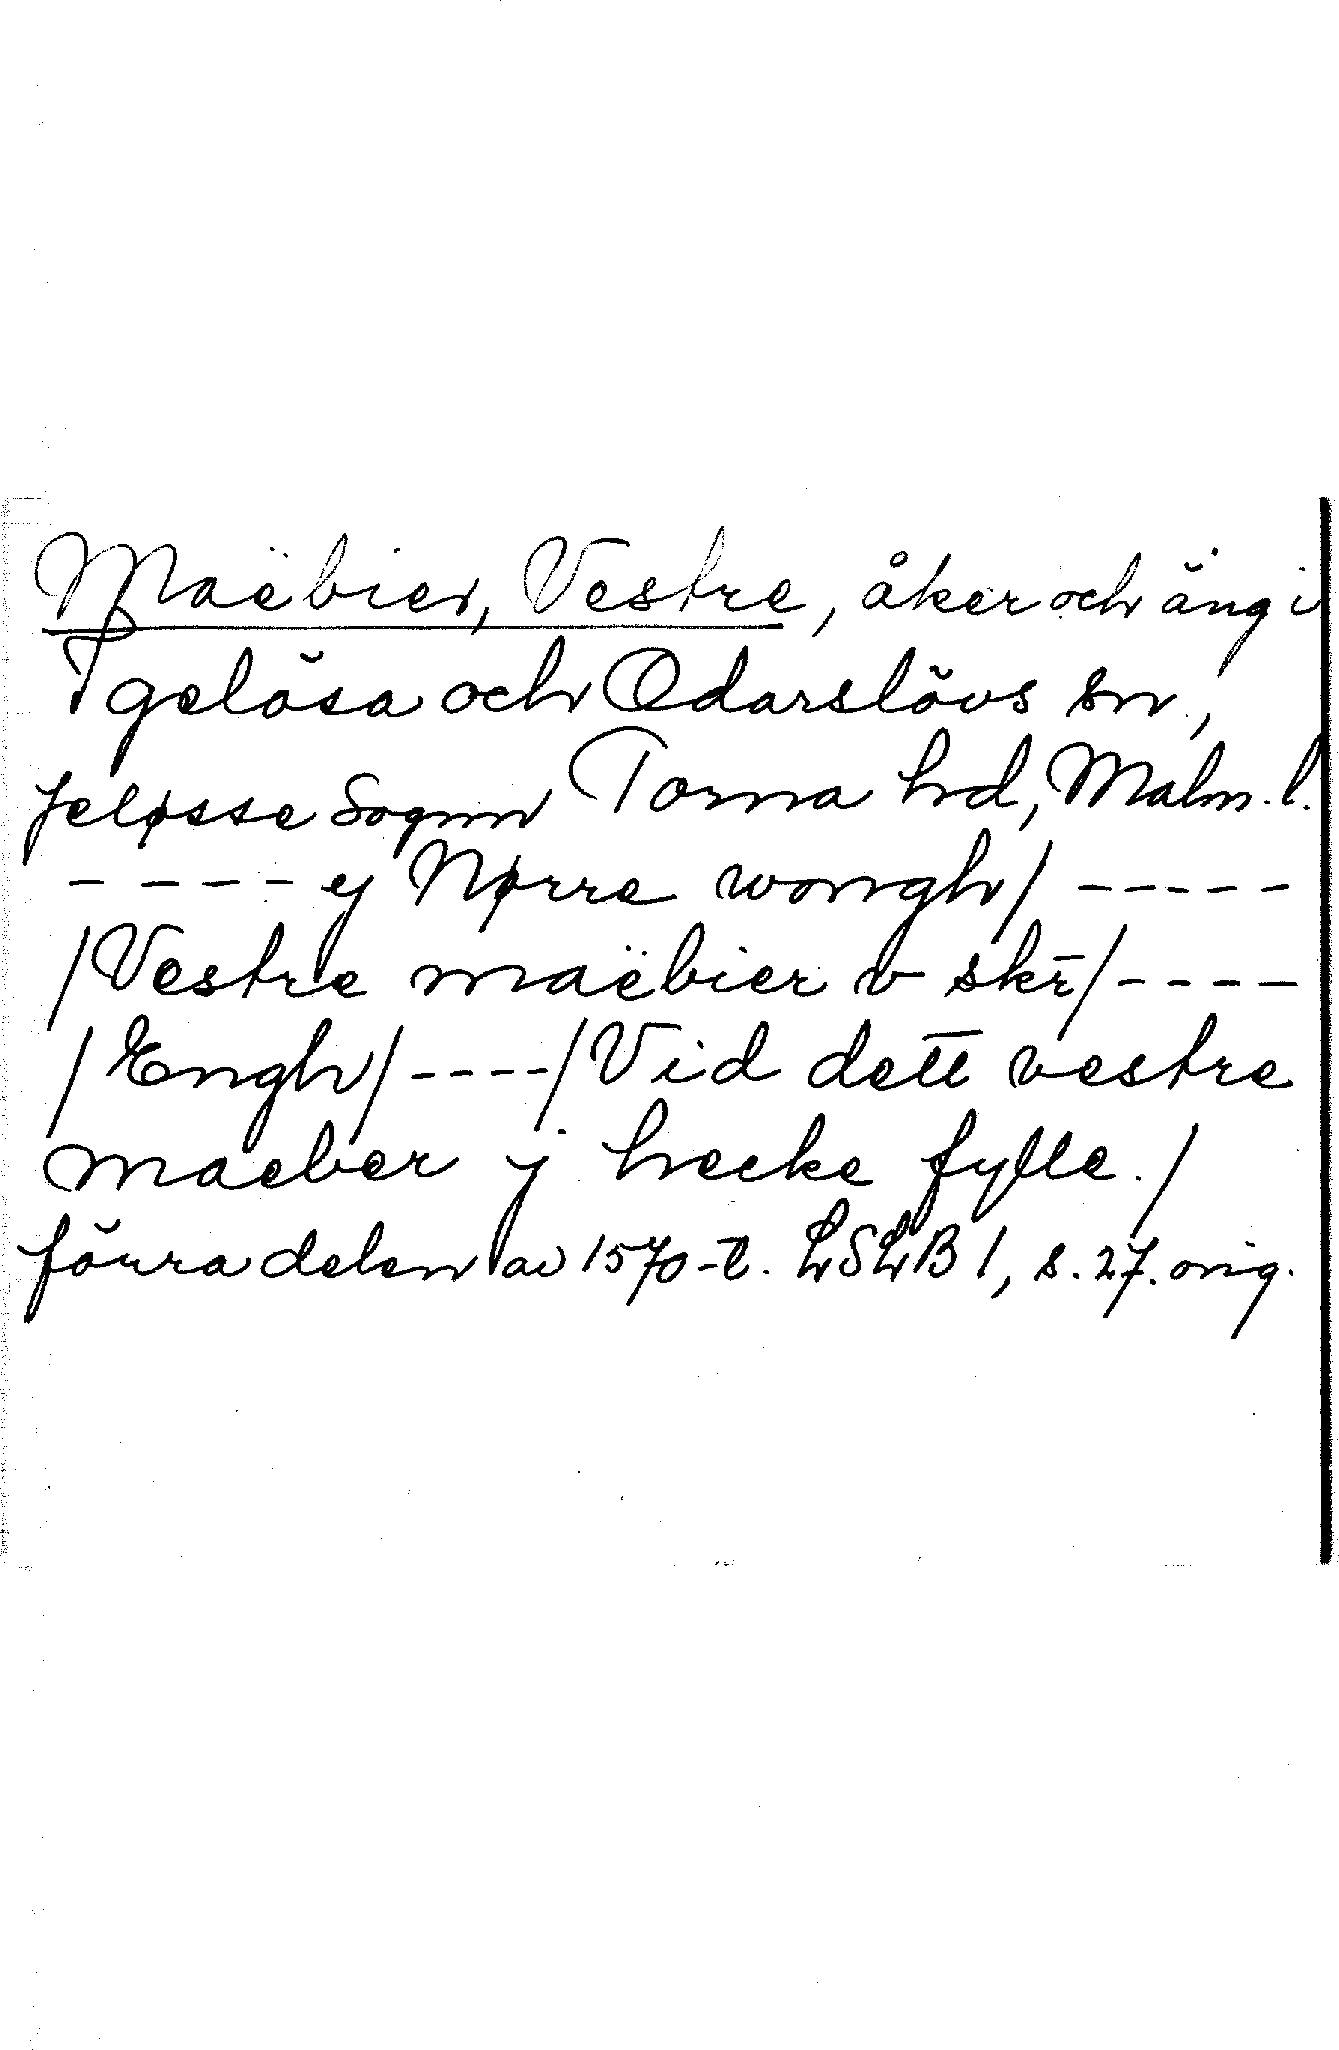 Maëbier, Vestre, åker och äng i
Igelösa och Odarslövs sn,
Jeløsse Sognn Torna hd, Malm. l.
---- ej Nørre wongh/ -----
/Vestre maëbier v skr̄/----
/Engh/----/Vid det̄t̄ vestre
maeber j hecke fylle./
förra delen av 1570-t. LSLB 1, s. 27. orig.